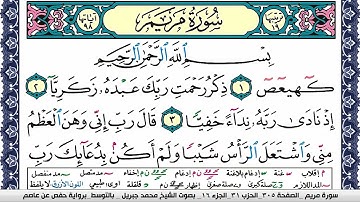 سُورَةُ مَرْيَمَ
بِسْمِ ٱللَّهِ ٱلرَّحْمَٰنِ ٱلرَّحِيمِ
كٓهيعٓصٓ ١ ذِكْرُ رَحْمَتِ رَبِّكَ عَبْدَهُۥ زَكَرِيَّآ ٢
إِذْ نَادَىٰ رَبَّهُۥ نِدَآءً خَفِيًّا ٣ قَالَ رَبِّ إِنِّى وَهَنَ ٱلْعَظْمُ
مِنِّى وَٱشْتَعَلَ ٱلرَّأْسُ شَيْبًا وَلَمْ أَكُنۢ بِدُعَآئِكَ رَبِّ
سورة مريم الصفحة ٣٠٥ الحزب ٣١ الجزء ١٦ بصوت الشيخ محمد جبريل بالتوسط برواية حفص عن عاصم